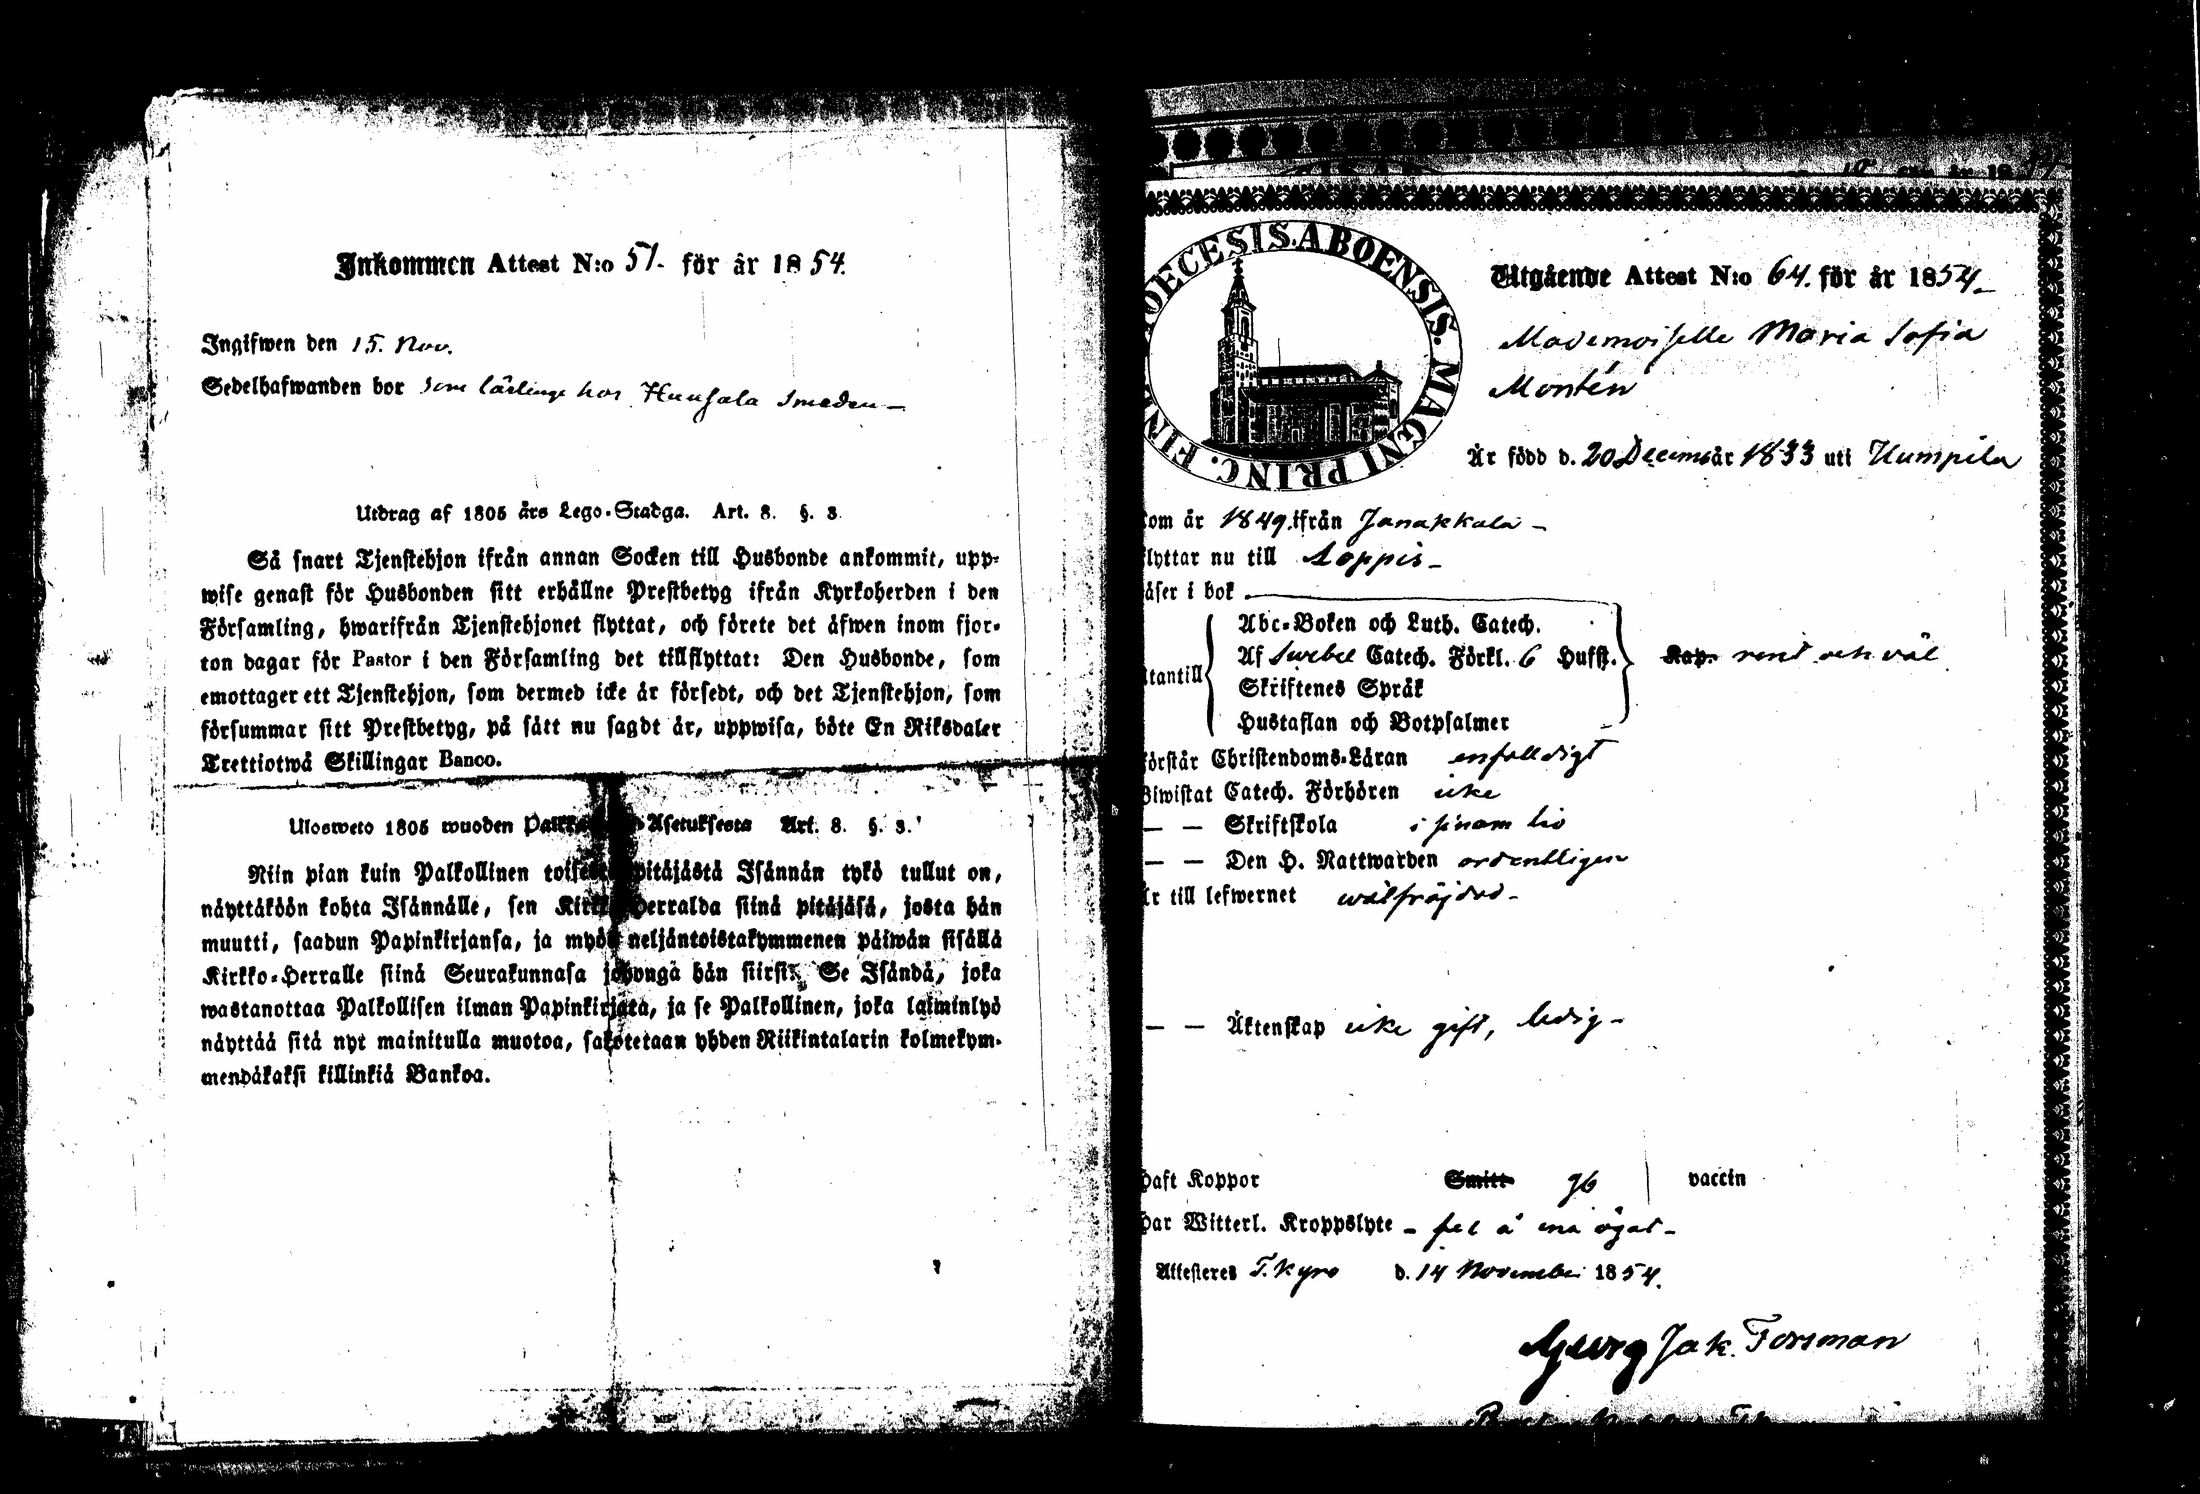 Inkommen Attest N:o 51. för år 1854.
Ingifwen den 15. Nov.
Sedelhafwanden bor som lärlinge hos Huusala Smeden
Utdrag af 1805 års Lego-Stadga. Art. 8. §. 3
Så snart Tjenstehjon ifrån annan Socken till Husbonde ankommit, upp-
wise genast för Husbonden sitt erhållne Prestbetyg ifrån Kyrkoherden i den
Församling, hwarifrån Tjenstehjonet flyttat, och förete det äfwen inom fjor-
ton dagar för Pastor i den Församling det tillflyttat: Den Husbonde, som
emottager ett Tjenstehjon, som dermed icke är försedt, och det Tjenstehjon, som
försummar sitt Prestbetyg, på sätt nu sagdt är, uppwisa, böte En Riksdaler
Trettiotwå Skillingar Banco.
Ulosweto 1805 wuoden Asetuksesta Art. 8. §. 3.
Niin pian kuin Palkollinen pitäjästä Isännän tykö tullut on,
näyttäköön kohta Isännälle, sen Kirkko-Herralda siinä pitäjäsä, josta hän
muutti, saadun Papinkirjansa, ja myös neljäntoistakymmenen päiwän sisällä
Kirkko-Herralle siinä Seurakunnasa johonga hän siirsi: Se Isändä, joka
wastanottaa Palkollisen ilman Papinkirjata, ja se Palkollinen, joka laiminlyö
näyttää sitä nyt mainitulla muotoa, sakotetaan yhden Riikintalarin kolmekym-
mendäkaksi killinkiä Bankoa.
DIOECESIS. ABOENSIS. MAGNI PRINC. FINL.
Utgående Attest N:o 64. för år 1854
Mademoiselle Maria Sofia
Montén
Är född d. 20 Decem. år 1833 uti Humpila
kom år 1849. ifrån Janakkala
flyttar nu till Loppis
läser i bok
Abc-Boken och Luth. Catech.
Af Swebel Catech. Förkl. 6 Hufst.
Kap. rent och väl
utantill
Skriftenes Språk
Hustaflan och Botpsalmer
förstår Christendoms-Läran enfalldigt
Biwistat Catech. Förhören icke
— — Skriftskola i sinom tid
— — Den H. Nattwarden ordentligen
Är till lefwernet wälfräjdad
— — Äktenskap icke gift, ledig
Haft Koppor Smitt vaccin
Har Witterl. Kroppslyte fel å ena ögat
Attesteres T. Kyro d. 14 November 1854.
Georg Jak. Forsman